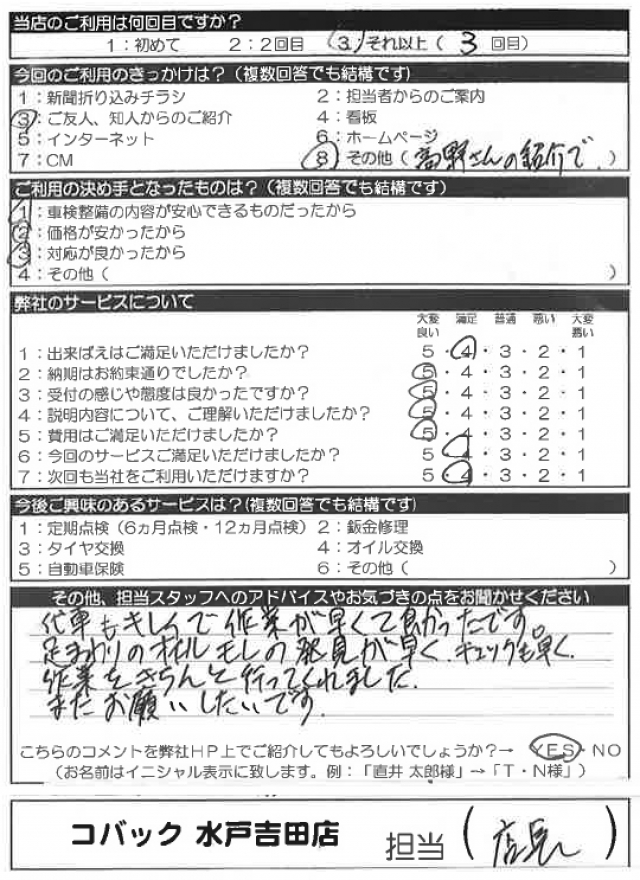 当店のご利用は何回目ですか？
1：初めて 2：2回目 3：それ以上（ 3 回目）
今回のご利用のきっかけは？（複数回答でも結構です）
1：新聞折り込みチラシ 2：担当者からのご案内
3：ご友人、知人からのご紹介 4：看板
5：インターネット 6：ホームページ
7：CM 8：その他（ 高野さんの紹介で. ）
ご利用の決め手となったものは？（複数回答でも結構です）
1：車検整備の内容が安心できるものだったから
2：価格が安かったから
3：対応が良かったから
4：その他（ ）
弊社のサービスについて
大変良い 満足 普通 悪い 大変悪い
1：出来ばえはご満足いただけましたか？ 5・4・3・2・1
2：納期はお約束通りでしたか？ 5・4・3・2・1
3：受付の感じや態度は良かったですか？ 5・4・3・2・1
4：説明内容について、ご理解いただけましたか？ 5・4・3・2・1
5：費用はご満足いただけましたか？ 5・4・3・2・1
6：今回のサービスご満足いただけましたか？ 5・4・3・2・1
7：次回も当社をご利用いただけますか？ 5・4・3・2・1
今後ご興味のあるサービスは？（複数回答でも結構です）
1：定期点検（6ヵ月点検・12ヵ月点検） 2：鈑金修理
3：タイヤ交換 4：オイル交換
5：自動車保険 6：その他（ ）
その他、担当スタッフへのアドバイスやお気づきの点をお聞かせください
代車もキレイで作業が早くて良かったです。
足まわりのオイルモレの発見が早く.チェックも早く.
作業をきちんと行ってくれました.
またお願いしたいです.
こちらのコメントを弊社HP上でご紹介してもよろしいでしょうか？→ YES・NO
（お名前はイニシャル表示に致します。例：「直井 太郎様」→「T・N様」）
コバック 水戸吉田店 担当（ 店長 ）